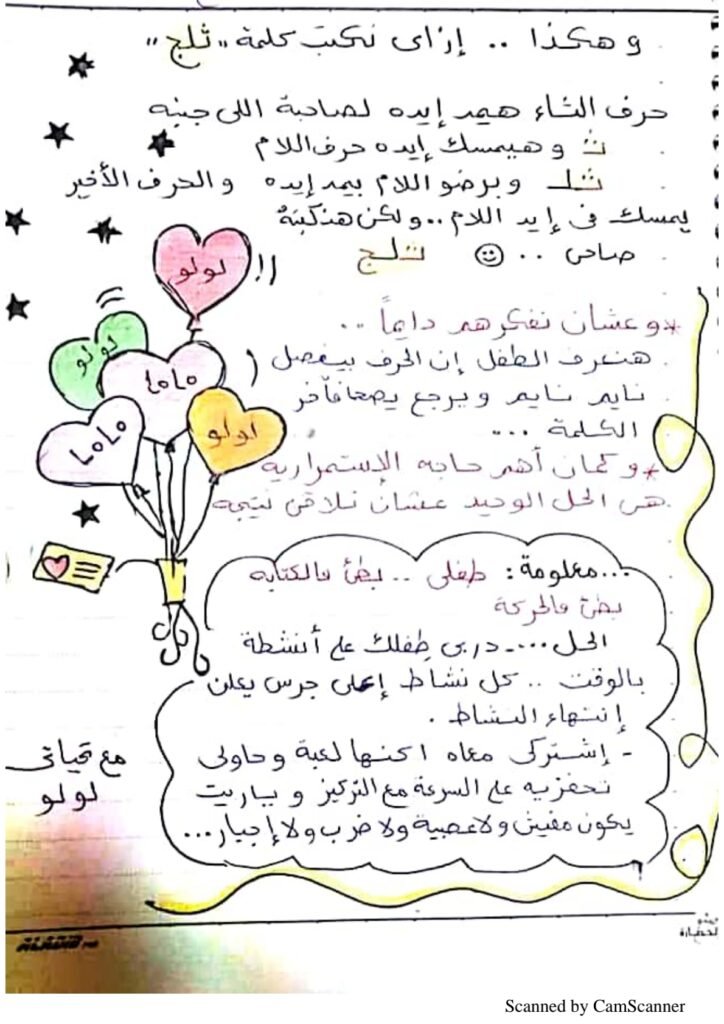 وهكذا .. إزاى نكتب كلمة "ثلج"
حرف الثاء هيمد إيده لصاحبة اللى جنبه
ثـ وهيمسك إيده حرف اللام
ثلـ وبرضو اللام بيمد إيده والحرف الأخير
يمسك فى إيد اللام .. ولكن هنكتبه
صاحى .. ☺ ثلج
لولو !!
لولو
لولو
lolo
lolo
*وعشان نفكرهم دايماً ..
هنعرف الطفل إن الحرف بيفصل
نايم نايم ويرجع يصحا فآخر
الكلمة ...
*وكمان أهم حاجه الإستمراريه
هى الحل الوحيد عشان نلاقى نتيجه
...معلومة: طفلى .. بطئ فالكتابه
بطئ فالحركة
الحل ...- دربى طفلك على أنشطة
بالوقت .. كل نشاط إعلى جرس يعلن
إنتهاء النشاط .
- إشتركى معاه اكنها لعبة وحاولى
تحفزيه على السرعة مع التركيز وياريت
يكون مفيش ولا عصبية ولا ضرب ولا إجبار...
مع تحياتى
لولو
Scanned by CamScanner